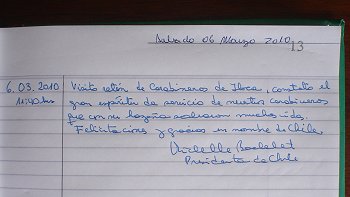 Sabado 06 Marzo 2010
13
6.03.2010 Visito retén de Carabineros de Iloca, constato el
11:40 hrs gran espíritu de servicio de nuestros carabineros
que con su hazaña salvaron muchas vidas.
Felicitaciones y gracias en nombre de Chile.
Michelle Bachelet
Presidenta de Chile